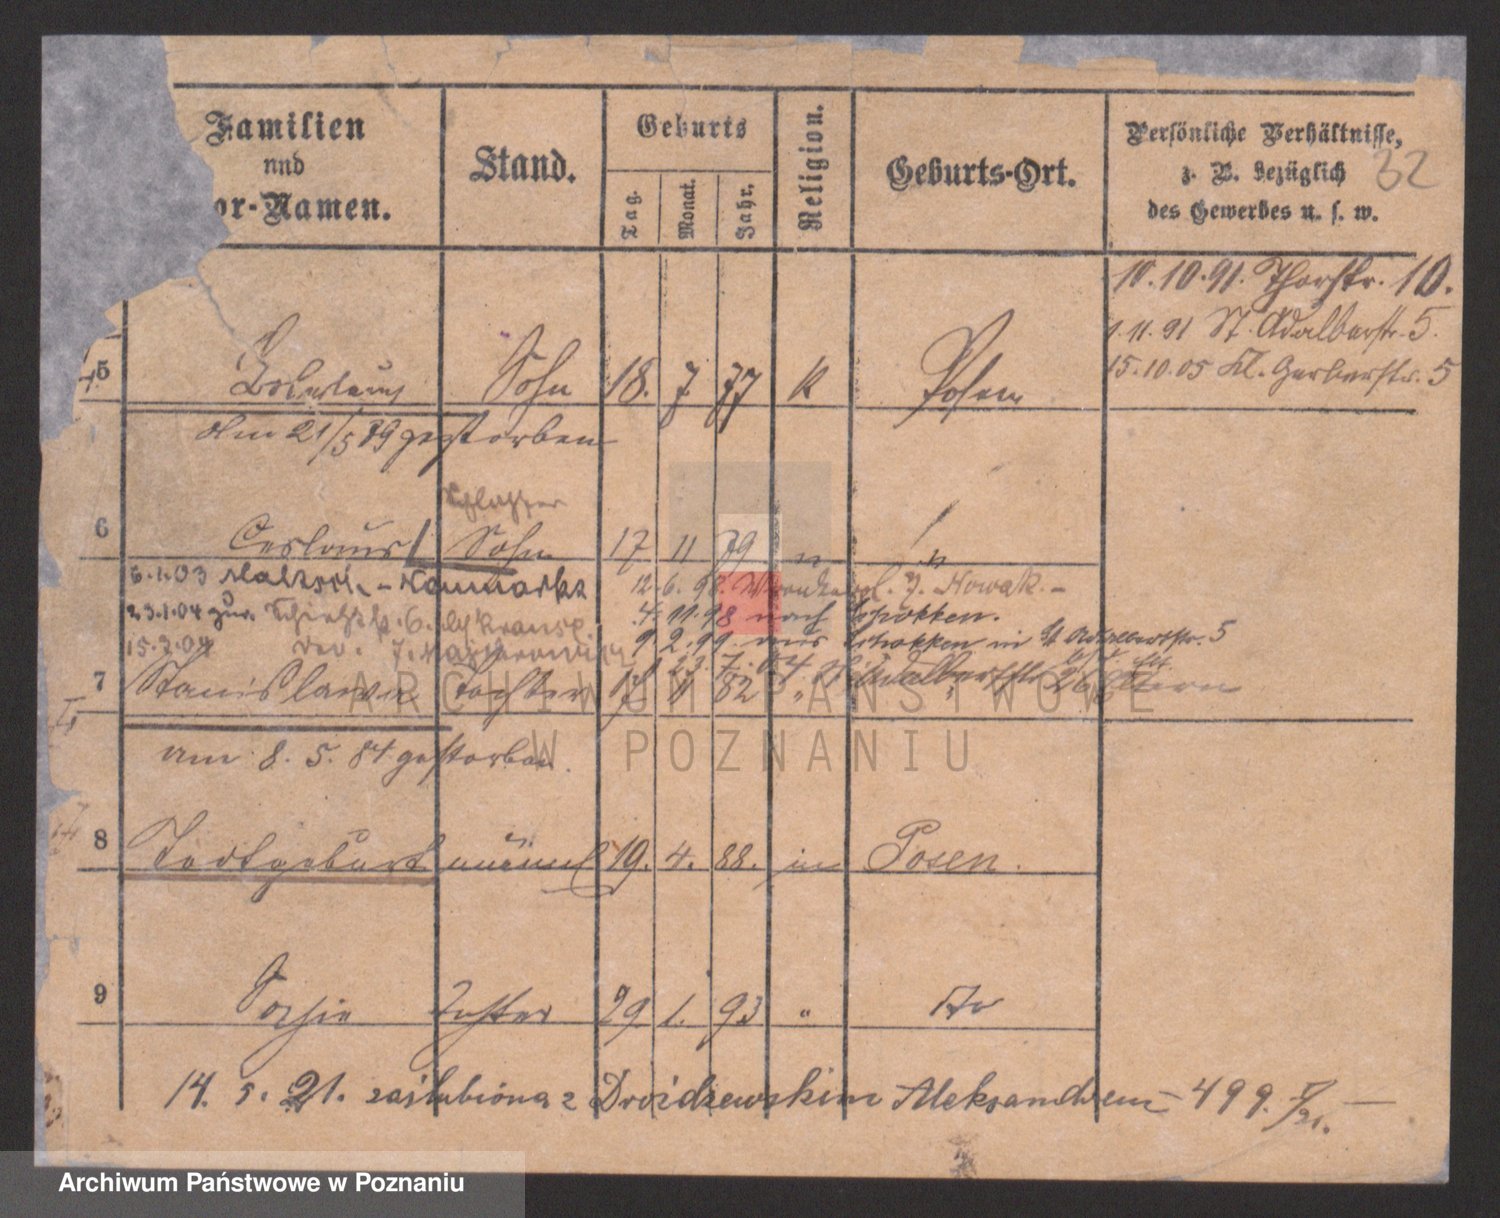 Familien
und
or-Namen.
Stand.
Geburts
Tag.
Monat.
Jahr.
Religion.
Geburts-Ort.
Persönliche Verhältnisse,
z. B. bezüglich
des Gewerbes u. s. w.
32
10.10.91. Thorstr. 10.
1.11.91 St. Adalbertstr. 5.
15.10.05 Kl. Gerberstr. 5
5 Boleslaus Sohn 18. 7 77 k Posen
Am 21/5 89 gestorben
Schlosser
6 Ceslaus Sohn 17 11 79 " "
6.1.03 - Neumarkt
12.6.98. J. Nowak. -
23.1.04 zur.
4.11.98 nach Schokken.
9.2.99. aus Schokken in St Adalbertstr. 5
15.2.04
23.7.04 St. Adalbertstr. 26 Eltern
7 Stanislawa Tochter 17 11 82 " "
am 8.5.84 gestorben.
8 Todtgeburt männl 19. 4. 88. in Posen.
9 Sophie Tochter 29 1. 93 " do
14. 5. 21. zaślubiona z Droidzewskim Aleksandrem - 499. V/21. -
ARCHIWUM PAŃSTWOWE
W POZNANIU
Archiwum Państwowe w Poznaniu